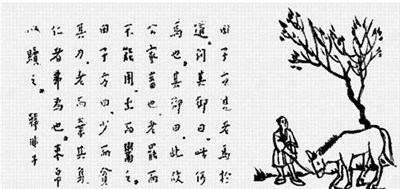 田子方見老馬於
道。問其御曰此何
馬也。其御曰。此故
公家畜也。老罷而
不能用。出而鬻之。
田子方曰。少而貪
其力。老而棄其身
仁者弗為也。束帛
以贖之。